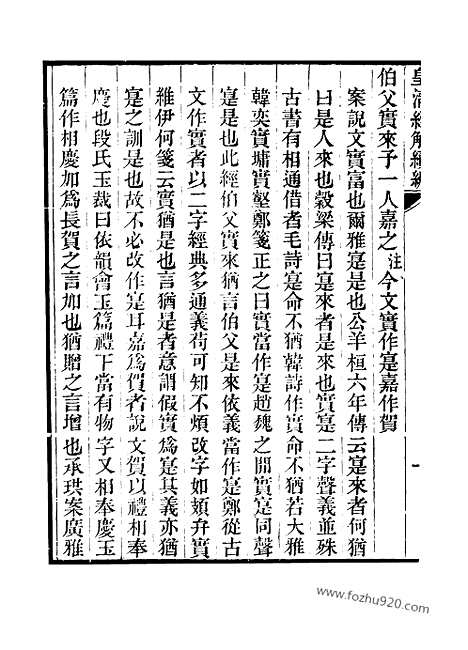 皇清經解續編
伯父實來予一人嘉之注今文實作寔嘉作賀
案說文實富也爾雅寔是也公羊桓六年傳云寔來者何猶
曰是人來也穀梁傳曰寔來者是來也實寔二字聲義並殊
古書有相通借者毛詩寔命不猶韓詩作實命不猶若大雅
韓奕實墉實壑鄭箋正之曰實當作寔趙魏之閒實寔同聲
寔是也此經伯父實來猶言伯父是來依義當作寔鄭從古
文作實者以二字經典多通義苟可知不煩改字如頍弁實
維伊何箋云實猶是也言猶是者意謂假實為寔其義亦猶
寔之訓是也故不必改作寔耳嘉為賀者說文賀以禮相奉
慶也段氏玉裁曰依韻會玉篇禮下當有物字又相奉慶玉
篇作相慶加為長賀之言加也猶贈之言增也承珙案廣雅
一
www.fozhu920.com